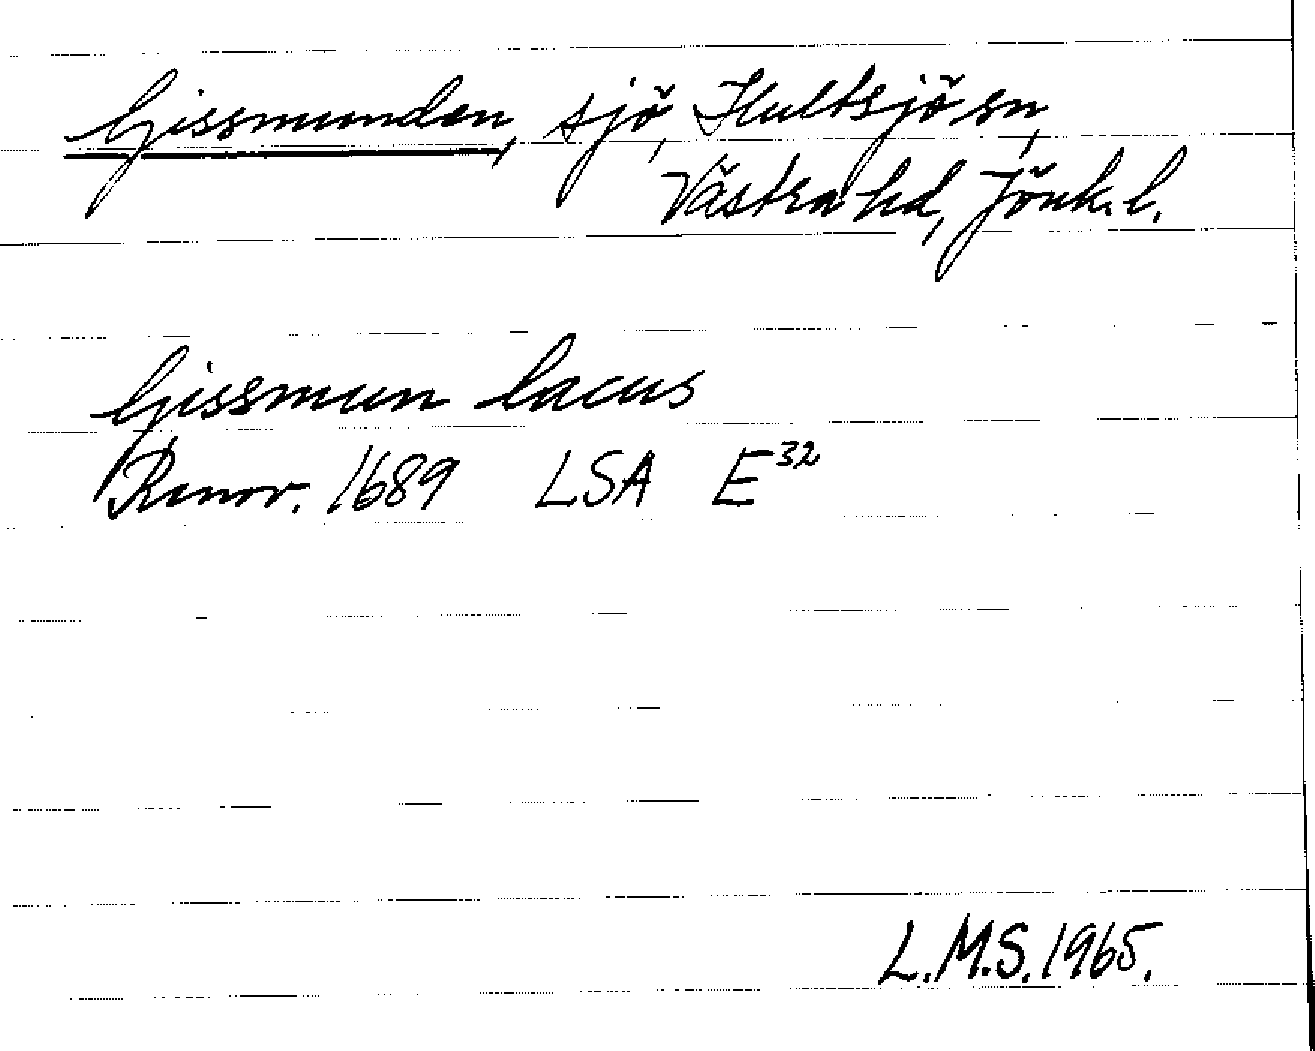 Gissmunden, sjö, Hultsjö sn,
Västra hd, Jönk. l.
Gissmun lacus
Renov. 1689 LSA E32
L.M.S. 1965.